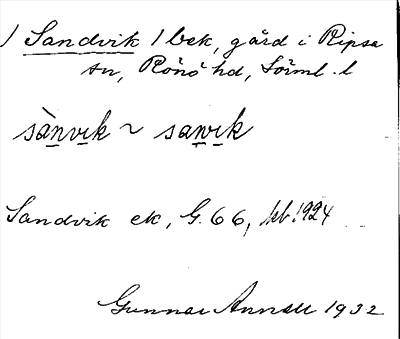 / Sandvik / bek, gård i Ripsa
sn, Rönö hd, Sörml. l
sànvik ~ sawik
Sandvik ek, G. 66, jkb. 1924
Gunnar 1932